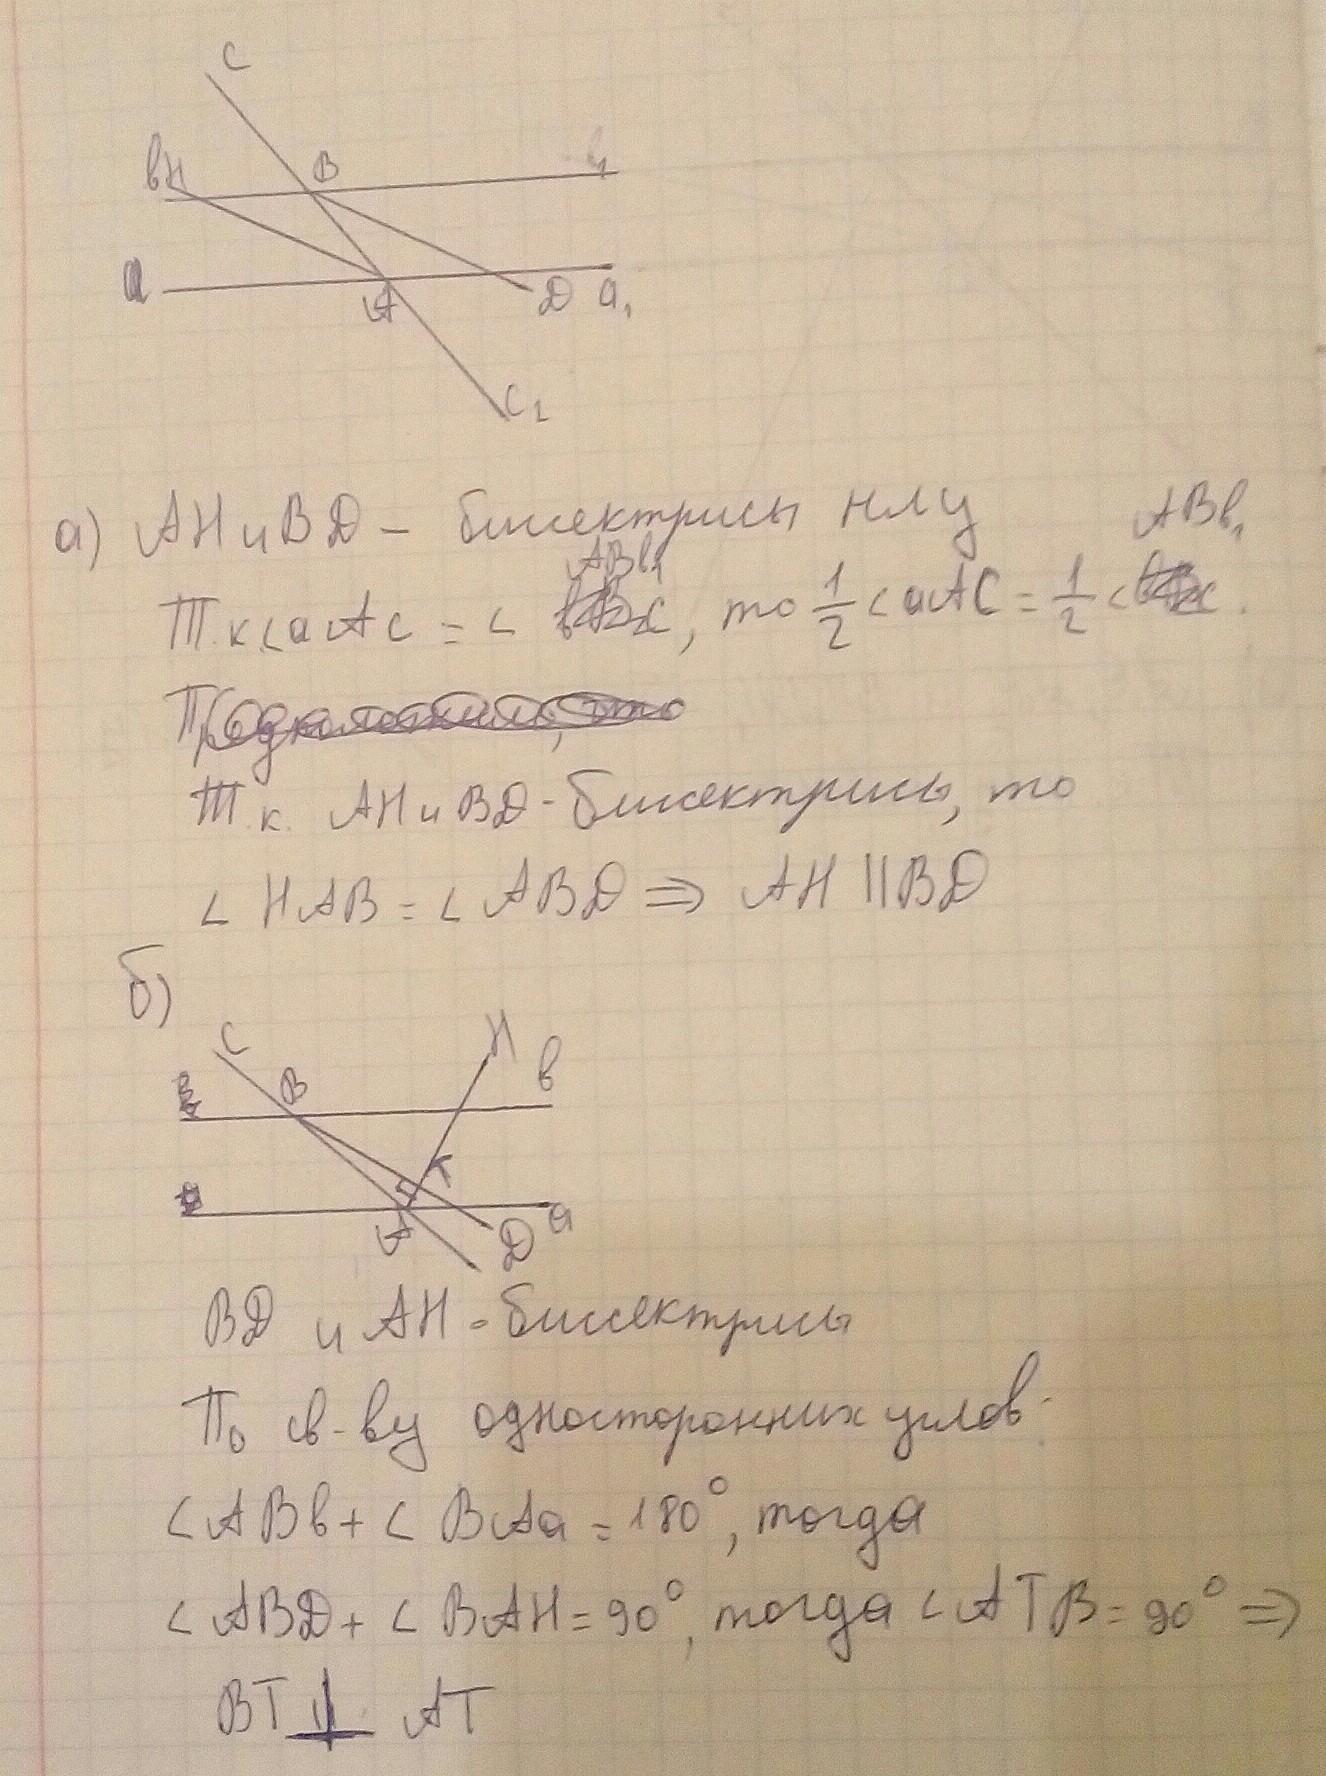 C
вH
B
в₁
a
A
D
a₁
C₁
а) AH и BD – биссектрисы НЛУ
Т.к ∠aAc = ∠ ABв₁, то 1/2 ∠aAC = 1/2 ∠ ABв₁.
Т.к. AH и BD - биссектрисы, то
∠ HAB = ∠ ABD ⇒ AH || BD
б)
C
H
B
в
T
A
D
a
BD и AH - биссектрисы
По св-ву односторонних углов.
∠ABв + ∠BAa = 180°, тогда
∠ABD + ∠BAH = 90°, тогда ∠ATB = 90° ⇒
BT ⊥ AT